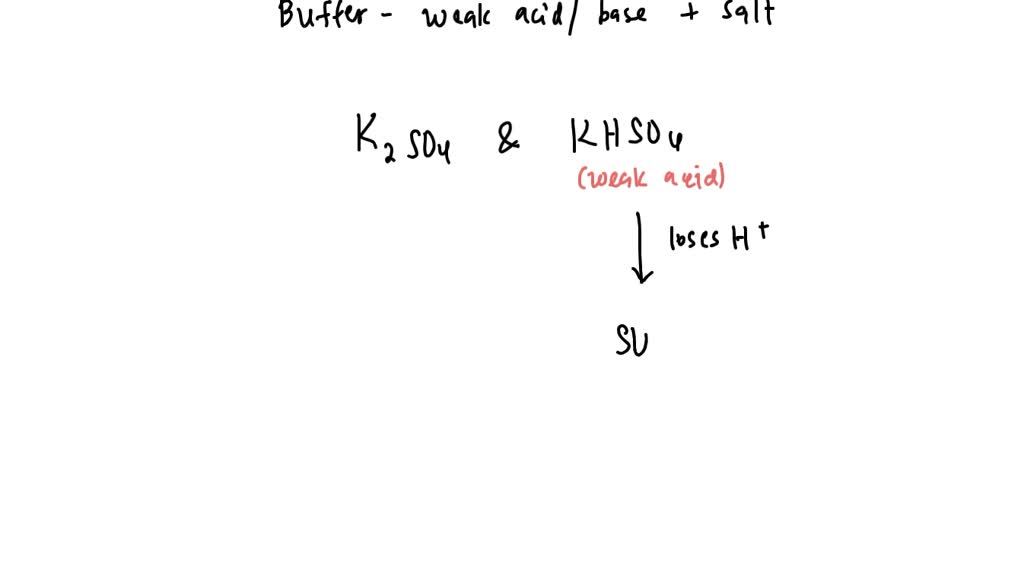 Buffer - weak acid/ base + salt
K₂SO₄ & KHSO₄
(weak acid)
loses H⁺
SO